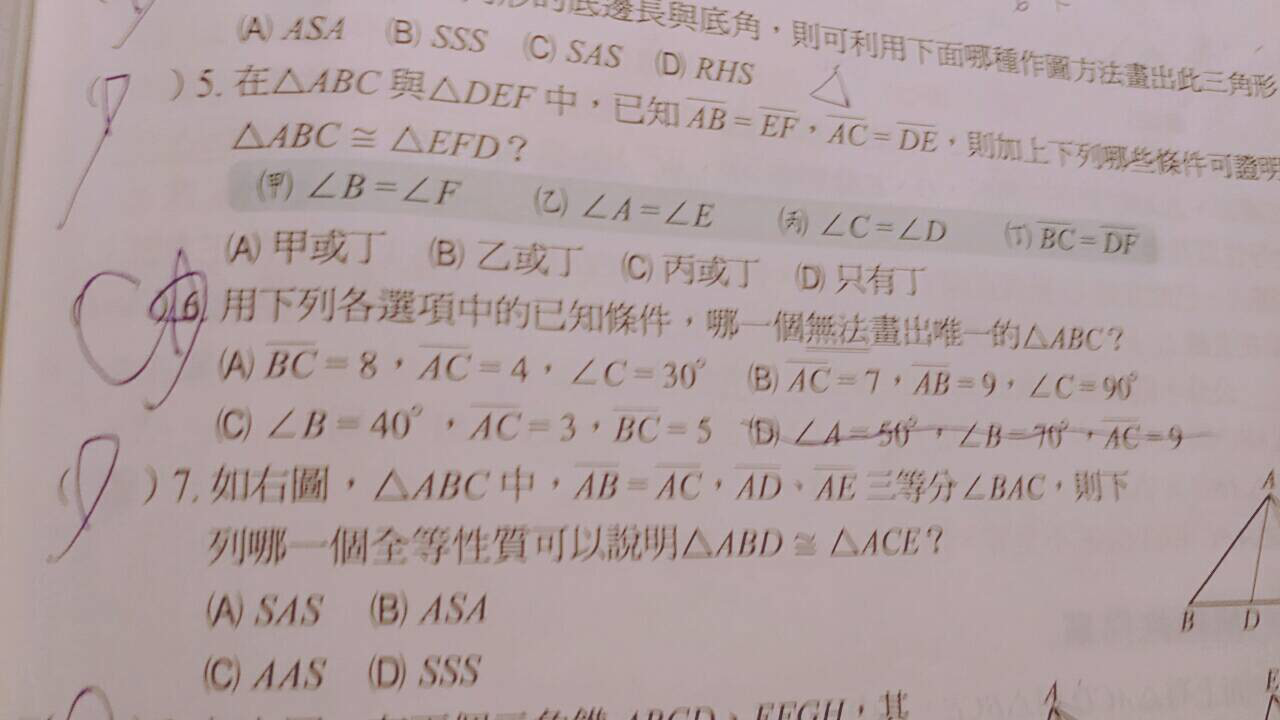 形的底邊長與底角，則可利用下面哪種作圖方法畫出此三角形
(A) ASA (B) SSS (C) SAS (D) RHS
( )5. 在△ABC與△DEF中，已知AB=EF，AC=DE，則加上下列哪些條件可證明
△ABC≅△EFD？
(甲) ∠B=∠F (乙) ∠A=∠E (丙) ∠C=∠D (丁) BC=DF
(A) 甲或丁 (B) 乙或丁 (C) 丙或丁 (D) 只有丁
6. 用下列各選項中的已知條件，哪一個無法畫出唯一的△ABC？
(A) BC=8，AC=4，∠C=30° (B) AC=7，AB=9，∠C=90°
(C) ∠B=40°，AC=3，BC=5 (D) ∠A=50°，∠B=70°，AC=9
( )7. 如右圖，△ABC中，AB=AC，AD、AE三等分∠BAC，則下
列哪一個全等性質可以說明△ABD≅△ACE？
A
(A) SAS (B) ASA
B D
(C) AAS (D) SSS
ABCD、EFGH，其
A E